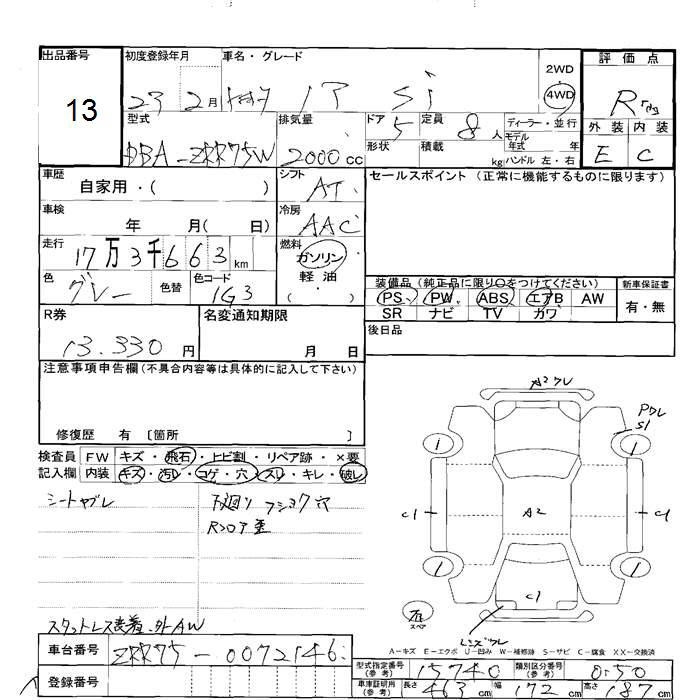 出品番号
13
初度登録年月
23 2月
車名・グレード
Si
2WD
4WD
評価点
R
外装 内装
E C
型式
DBA-ZRR75W
排気量
2000cc
ドア
5
定員
8人
形状
積載
kg
ディーラー・並行
モデル
年式 年
ハンドル 左・右
車歴
自家用・( )
シフト
AT
車検
年 月( 日)
冷房
AAC
走行
17万3千663km
燃料
ガソリン
軽・油
( ・ )
色
グレー
色替
色コード
1G3
セールスポイント (正常に機能するものに限ります)
装備品 (純正品に限り○をつけてください)
PS PW ABS エアB AW
SR ナビ TV カワ
新車保証書
有・無
後日品
R券
13.330円
名変通知期限
月 日
注意事項申告欄(不具合内容等は具体的に記入して下さい)
修復歴 有 〔箇所 〕
検査員
記入欄
FW キズ・飛石・上ビ割・リペア跡・×要
内装 キズ・汚レ・コゲ・穴・スレ・キレ・破レ
シートヤブレ
下廻り フショク穴
Rフロア歪
スタットレス装着・外AW
A2クレ
Pクレ
S1
1
1
C1
A2
C1
1
1
C1
スペア
レンズワレ
A-キズ E-エクボ U-凹み W-補修跡 S-サビ C-腐食 XX-交換済
車台番号
ZRR75-0072146
登録番号
型式指定番号
(参考)
15740
類別区分番号
(参考)
0050
車庫証明用
(参考)
長さ 463cm
幅 172cm
高さ 187cm